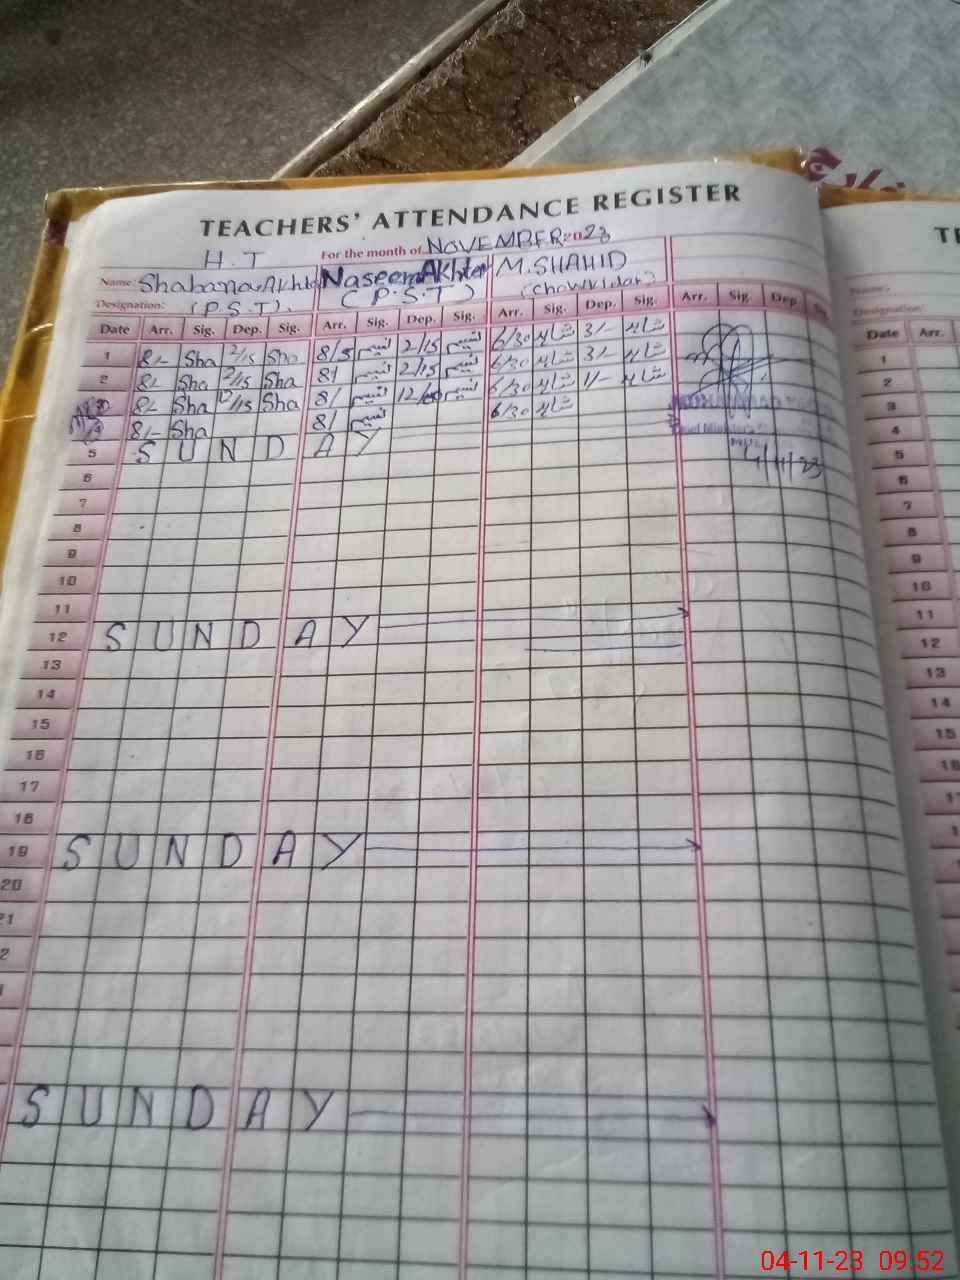 TEACHERS' ATTENDANCE REGISTER
H.T For the month of NOVEMBER 2023
Name: Shabana Akhter Naseem Akhter M. SHAHID
Designation: (P.S.T). (P.S.T) (Chowkidar)
Date Arr. Sig. Dep. Sig. Arr. Sig. Dep. Sig. Arr. Sig. Dep. Sig. Arr. Sig. Dep.
1 8/- Sha 2/15 Sha 8/5 نسیم 2/15 نسیم 6/30 شاہد 3/- شاہد
2 8/- Sha 2/15 Sha 8/ نسیم 2/15 نسیم 6/30 شاہد 3/- شاہد
8/- Sha 12/15 Sha 8/ نسیم نسیم 6/30 شاہد 1/- شاہد
8/- Sha 8/ نسیم 6/30 شاہد
5 SUNDAY 4/11/23
6
7
8
9
10
11
12 SUNDAY
13
14
15
16
17
18
19 SUNDAY
20
21
2
SUNDAY
TE
Name:
Designation:
Date Arr.
1
2
3
4
5
6
7
8
9
10
11
12
13
14
15
16
1
1
04-11-23 09:52